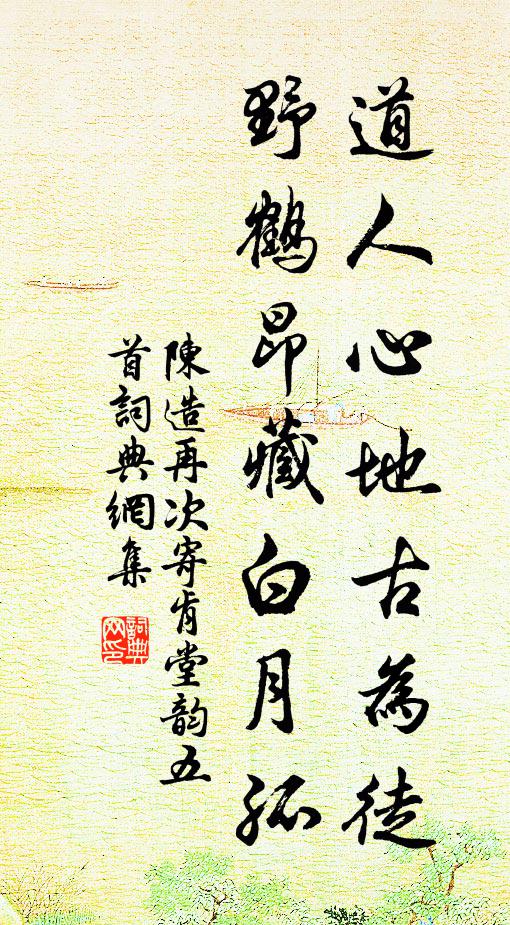 道人心地古為徒
野鶴昂藏白月孤
陳造再次寄肯堂韵五
首詞典網集
詞典
网印